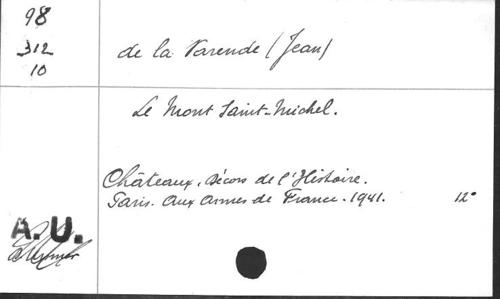 98
312
10
de la Varende (Jean)
Le Mont Saint-Michel.
Châteaux, Décors de l'Histoire.
Paris. Aux Armes de France. 1941. 12°
A.U.